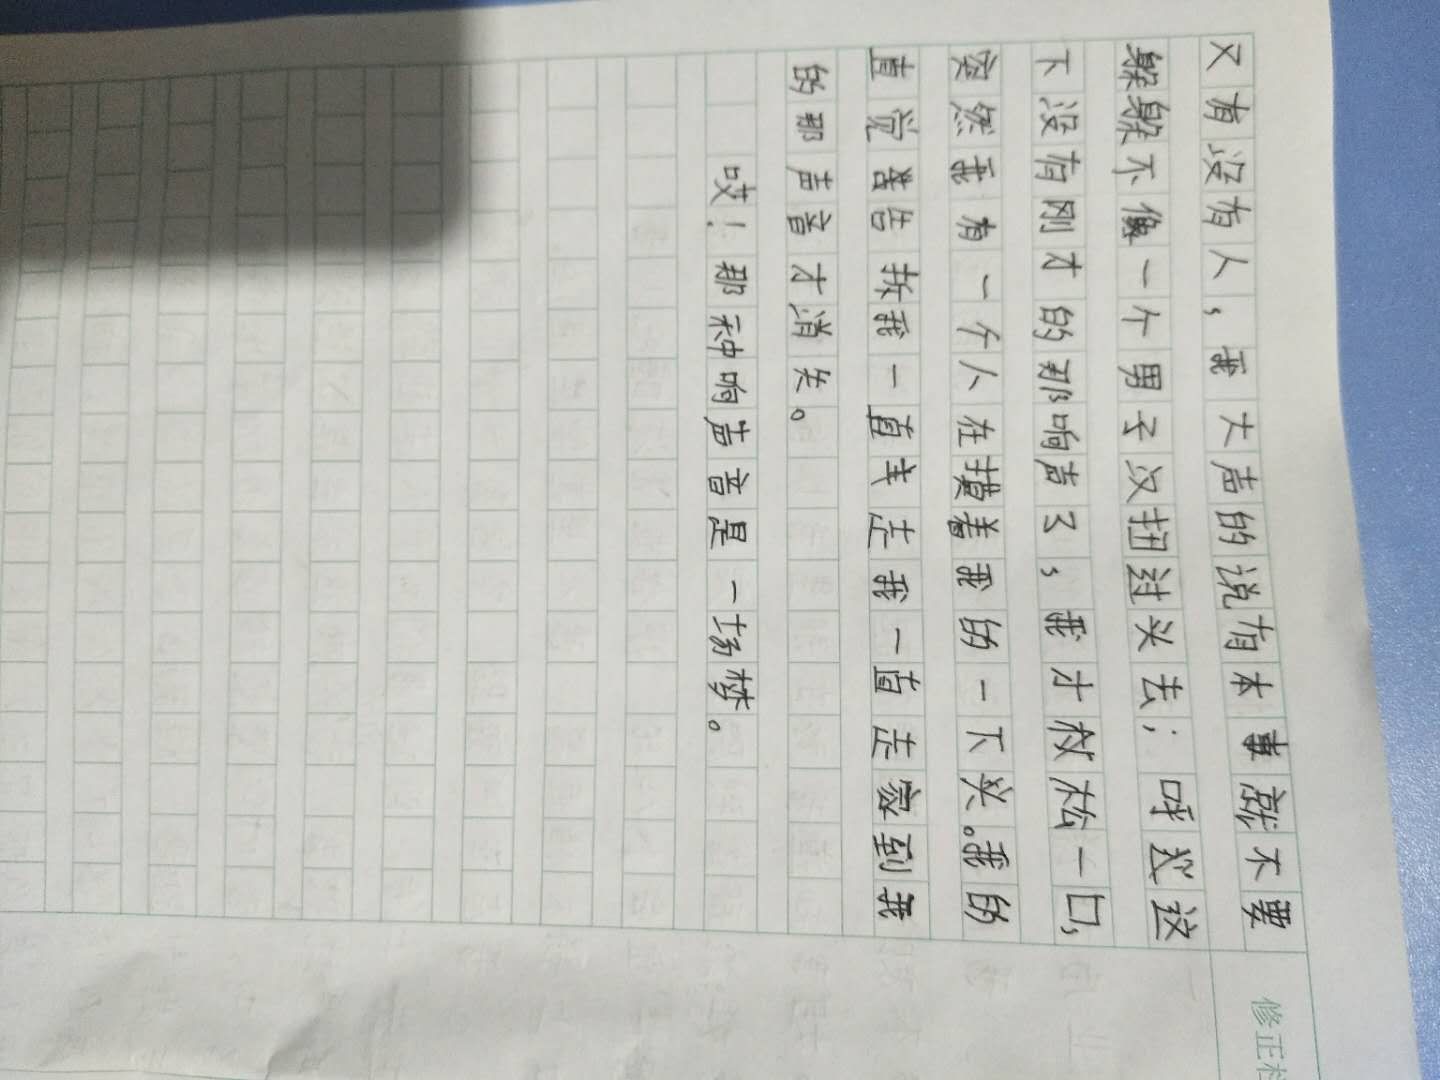 又有没有人，我大声的说有本事就不要
躲躲不像一个男子汉扭过头去；呼这
下没有刚才的那响声了，我才松一口，
突然我有一个人在摸着我的一下头。我的
直觉告我一直走我一直走家到我
的那声音才消失。
哎！那种响声音是一场梦。
修正栏